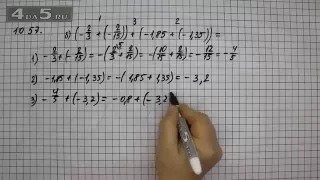 4ДА5.RU
10.57. б) (-2/3 + (-2/15)) + (-1,85 + (-1,35)) =
1) -2/3 + (-2/15) = -(2/3 + 2/15) = -(10/15 + 2/15) = -12/15 = -4/5
2) -1,85 + (-1,35) = -(1,85 + 1,35) = -3,2
3) -4/5 + (-3,2) = -0,8 + (-3,2